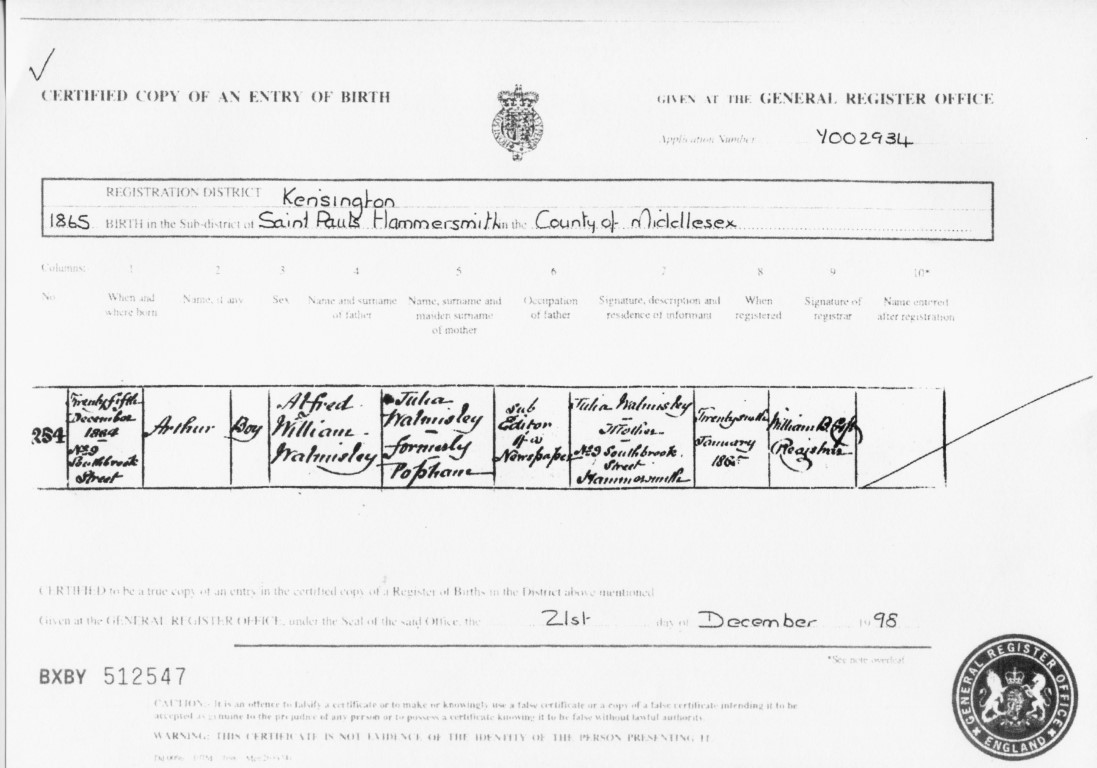 CERTIFIED COPY OF AN ENTRY OF BIRTH
GIVEN AT THE GENERAL REGISTER OFFICE
Application Number Y002934
REGISTRATION DISTRICT Kensington
1865 BIRTH in the Sub-district of Saint Pauls Hammersmith in the County of Middlesex
Columns: 1 2 3 4 5 6 7 8 9 10*
No. When and where born
Name, if any
Sex
Name and surname of father
Name, surname and maiden surname of mother
Occupation of father
Signature, description and residence of informant
When registered
Signature of registrar
Name entered after registration
284
Twenty fifth
December
1864
No 9
Southbrook
Street
Arthur
Boy
Alfred
William
Walmisley
Julia
Walmisley
formerly
Popham
Sub
Editor
of a
Newspaper
Julia Walmisley
Mother
No 9 Southbrook
Street
Hammersmith
January
1865
William
Registrar
CERTIFIED to be a true copy of an entry in the certified copy of a Register of Births in the District above mentioned
Given at the GENERAL REGISTER OFFICE, under the Seal of the said Office, the 21st day of December 1998
*See note overleaf
BXBY 512547
CAUTION:- It is an offence to falsify a certificate or to make or knowingly use a false certificate or a copy of a false certificate intending it to be
accepted as genuine to the prejudice of any person or to possess a certificate knowing it to be false without lawful authority.
WARNING: THIS CERTIFICATE IS NOT EVIDENCE OF THE IDENTITY OF THE PERSON PRESENTING IT
GENERAL REGISTER OFFICE
ENGLAND